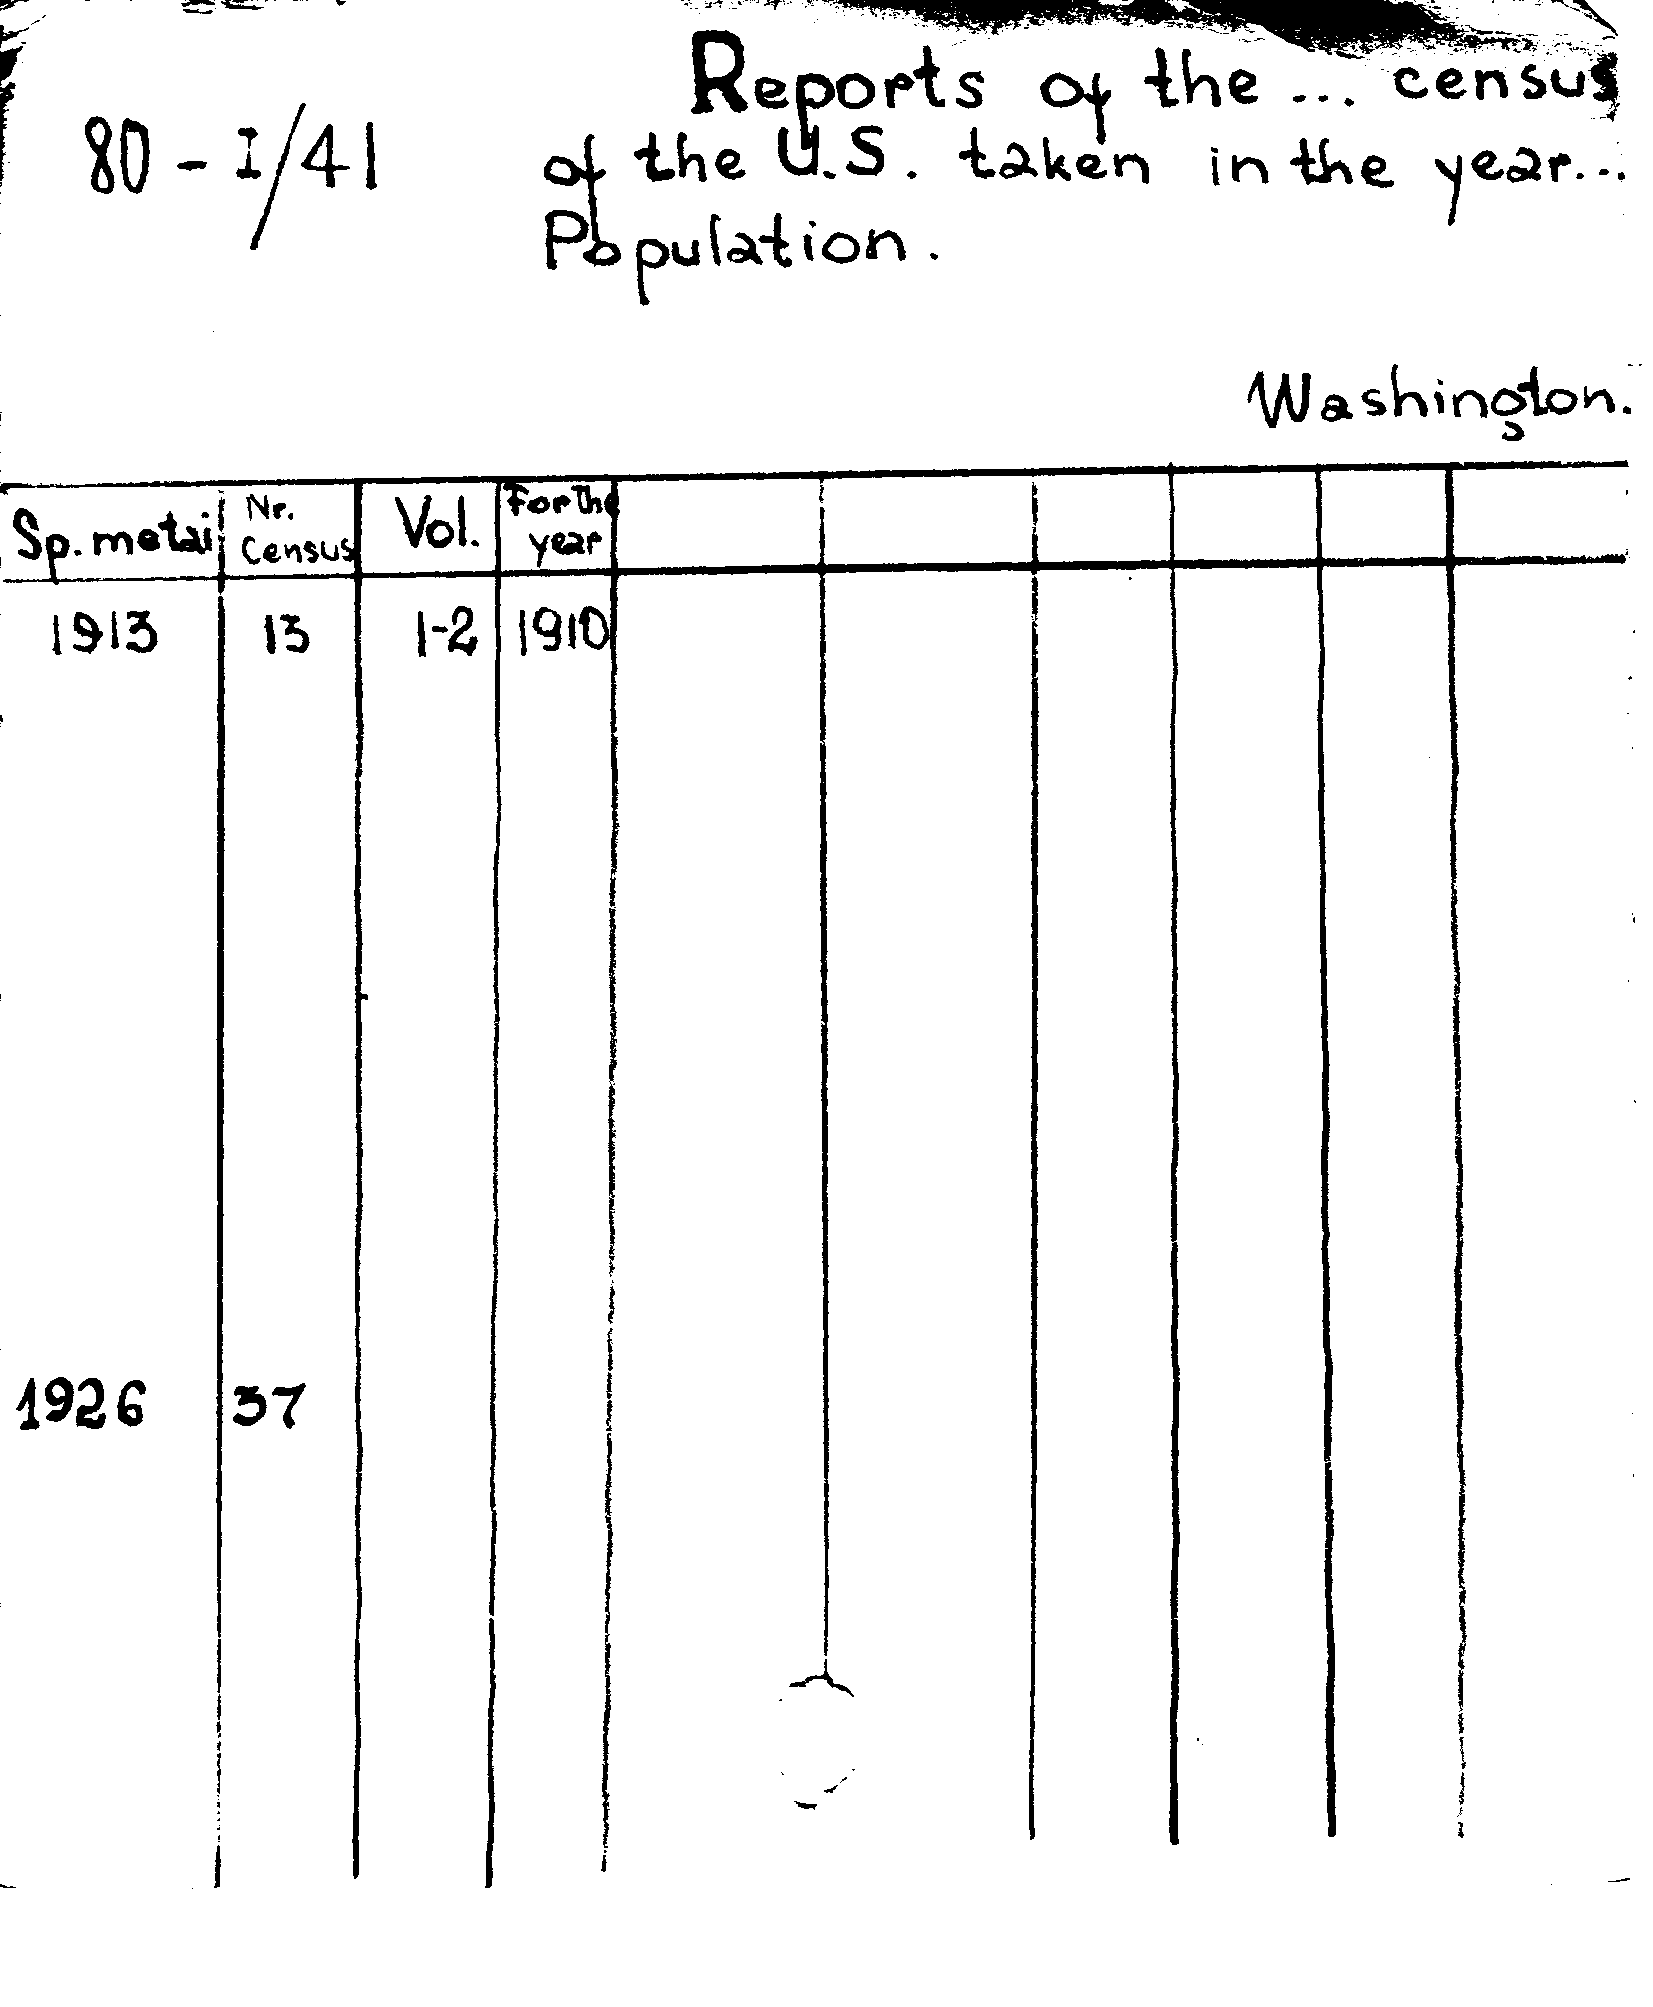 Reports of the ... census
80 - I/41
of the U.S. taken in the year...
Population.
Washington.
Sp. metai Nr. Census Vol. For the year
1913 13 1-2 1910
1926 37